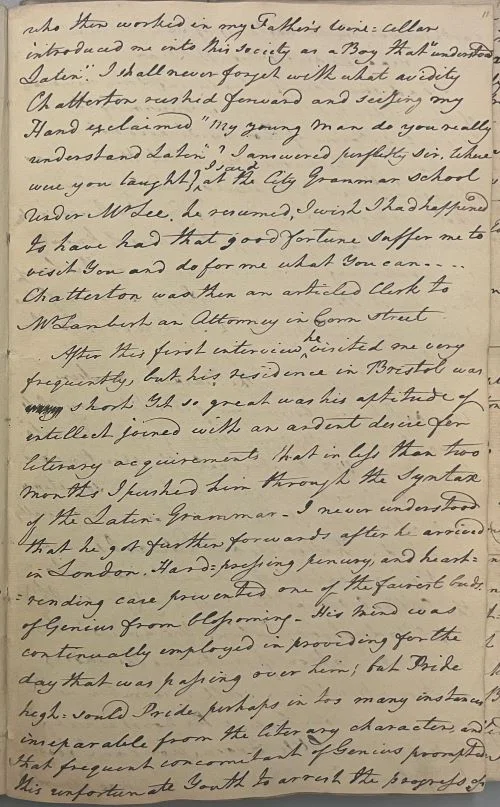 who then worked in my Father's wine=cellar
introduced me into this society as a Boy that "understood
Latin". I shall never forget with what avidity
Chatterton rushed forward and seising my
Hand exclaimed "My young Man do you really
understand Latin"? I answered perfectly sir. Where
were you taught? I said at the City Grammar school
under Mr Lee. he resumed, I wish I had happened
to have had that good fortune suffer me to
visit You and do for me what You can....
Chatterton was then an articled Clerk to
Mr Lambert an Attorney in Corn Street
After this first interview he visited me very
frequently, but his residence in Bristol was
short. Yet so great was his aptitude of
intellect joined with an ardent desire for
literary acquirements that in less than two
months I pushed him through the Syntax
of the Latin=Grammar - I never understood
that he got further forwards after he arrived
in London. Hard=pressing penury, and heart=
=rending care prevented one of the fairest buds
of Genius from blossoming - His mind was
continually employed in providing for the
day that was passing over him; but Pride
high=sould Pride perhaps in too many instances
inseparable from the literary character, and
that frequent concomitant of Genius prompted
this unfortunate Youth to arrest the progress of